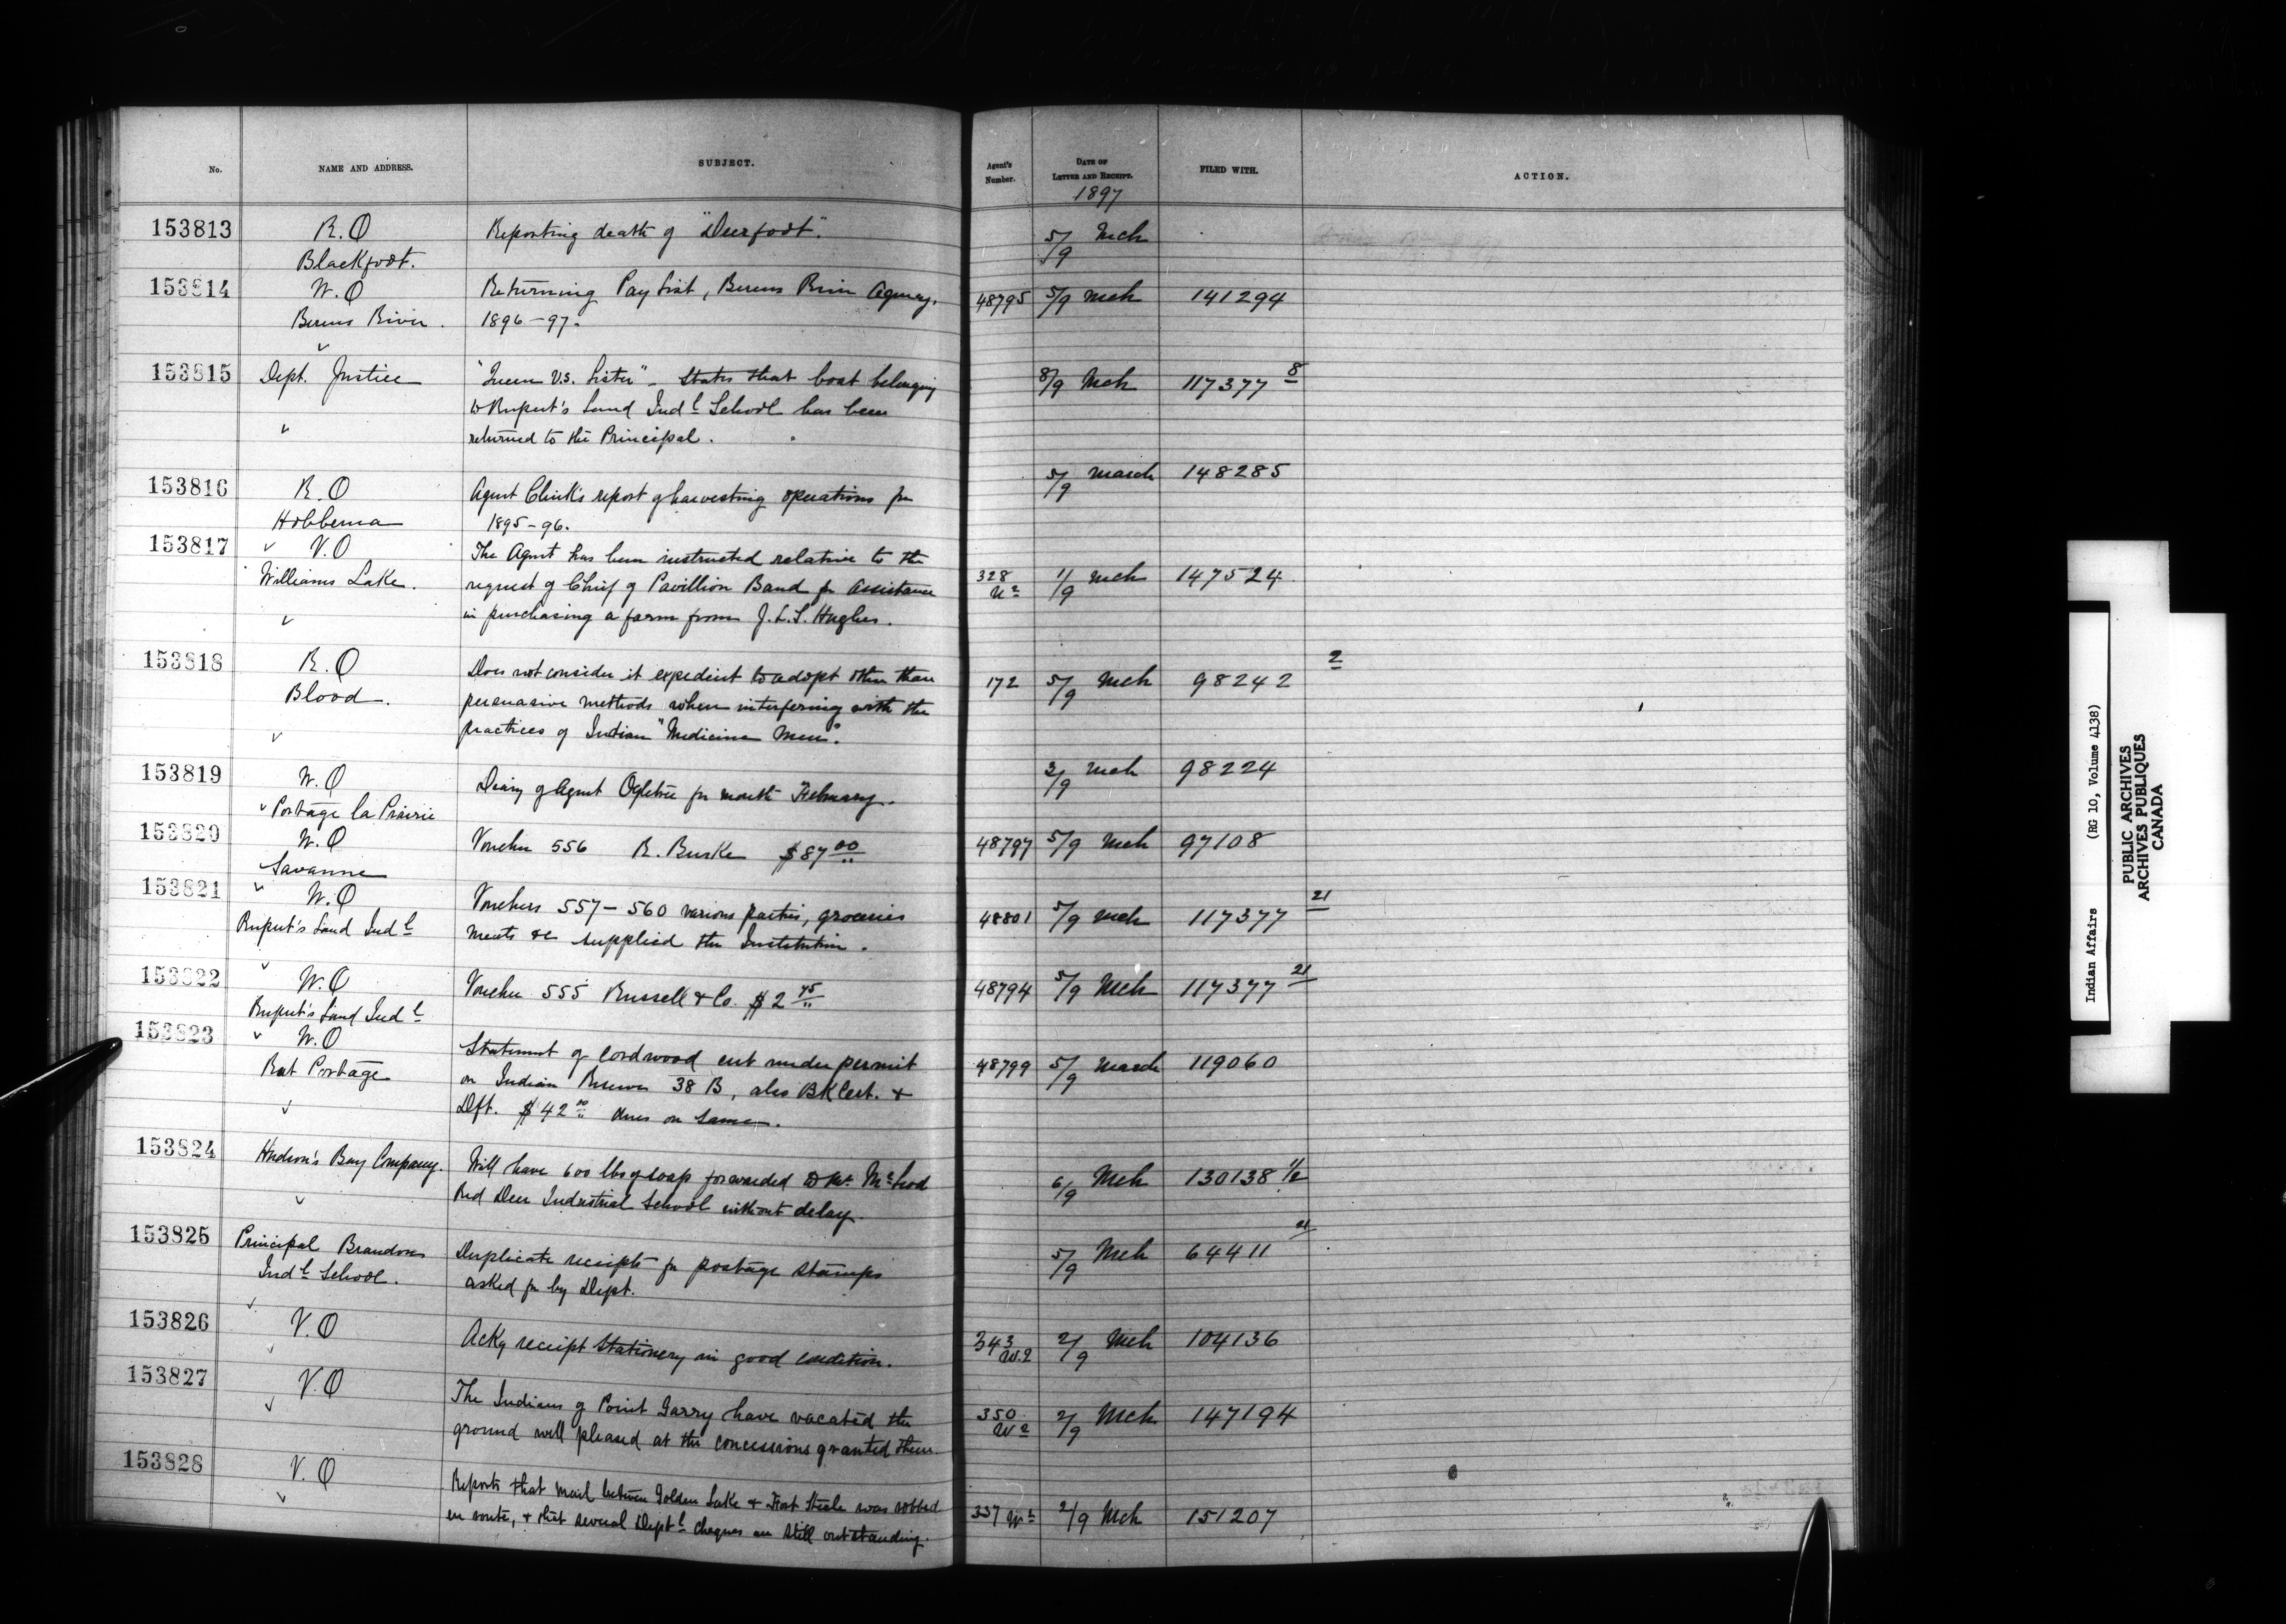 No. NAME AND ADDRESS. SUBJECT. Agent's Number. DATE OF LETTER AND RECEIPT. FILED WITH. ACTION.
1897
153813 R.O Reporting death of "Deerfoot". 5/9 Mch
Blackfoot.
153814 W.O Returning Pay List, Berens River Agency, 48795 5/9 Mch 141294
Berens River. 1896-97.
153815 Dept. Justice "Queen V.S. Lister" - States that boat belonging 8/9 Mch 117377 8
to Rupert's Land Indl School has been
returned to the Principal.
153816 R.O Agent Clink's report of harvesting operations for 5/9 March 148285
Hobbema 1895-96.
153817 V.O The Agent has been instructed relative to the
Williams Lake. request of Chief of Pavillion Band for assistance 328 1/9 Mch 147524
in purchasing a farm from J.L.S. Hughes.
153818 R.O Does not consider it expedient to adopt other than 172 5/9 Mch 98242 2
Blood. persuasive methods when interfering with the
practices of Indian "Medicine Men".
153819 W.O Diary of Agent Ogletree for month February. 3/9 Mch 98224
Portage la Prairie
153820 W.O Voucher 556 R. Burke $87 00 48797 5/9 Mch 97108
Savanne
153821 W.O Vouchers 557-560 various parties, groceries 48801 5/9 Mch 117377 21
Rupert's Land Indl meats &c supplied the Institution.
153822 W.O Voucher 555 Russell & Co. $2 45 48794 5/9 Mch 117377 21
Rupert's Land Indl
153823 W.O Statement of cordwood cut under permit 48799 5/9 March 119060
Rat Portage on Indian Reserve 38 B, also BK Cert. &
Dft. $42 00 dues on same.
153824 Hudson's Bay Company. Will have 600 lbs of soap forwarded to Mr. McLeod 6/9 Mch 130138 1/2
Red Deer Industrial School without delay.
153825 Principal Brandon Duplicate receipts for postage stamps 5/9 Mch 64411 21
Indl School. asked for by Dept.
153826 V.O Ackg receipt Stationery in good condition. 343 W.2 2/9 Mch 104136
153827 V.O The Indians of Point Garry have vacated the 350 W2 2/9 Mch 147194
ground well pleased at the concessions granted them.
153828 V.O Reports that mail between Golden Lake & Fort Steele was robbed
en route, & that several Deptl cheques are still outstanding. 337 2/9 Mch 151207
Indian Affairs (RG 10, Volume 4138)
PUBLIC ARCHIVES
ARCHIVES PUBLIQUES
CANADA